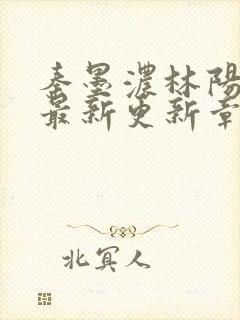 秦墨濃林陽
最新更新章
北冥人